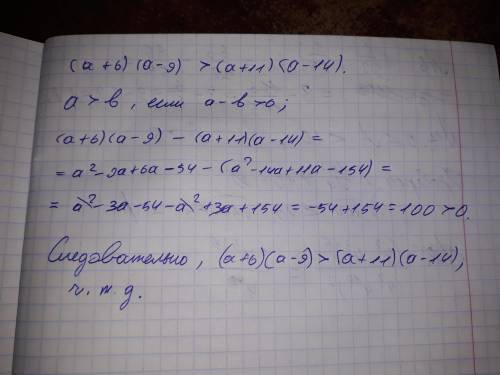 (a+6)(a-9) > (a+11)(a-14).
a > b, если a-b>0;
(a+6)(a-9) - (a+11)(a-14) =
= a²-9a+6a-54-(a²-14a+11a-154) =
= a²-3a-54-a²+3a+154 = -54+154=100>0.
Следовательно, (a+6)(a-9)>(a+11)(a-14),
ч. т. д.